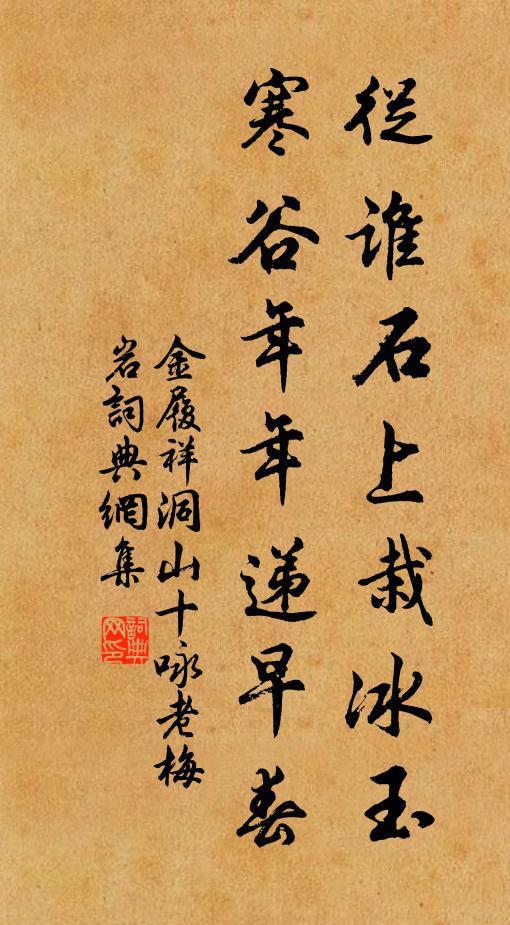 從誰石上栽冰玉
寒谷年年遞早春
金履祥洞山十咏老梅
岩詞典網集
詞典網印